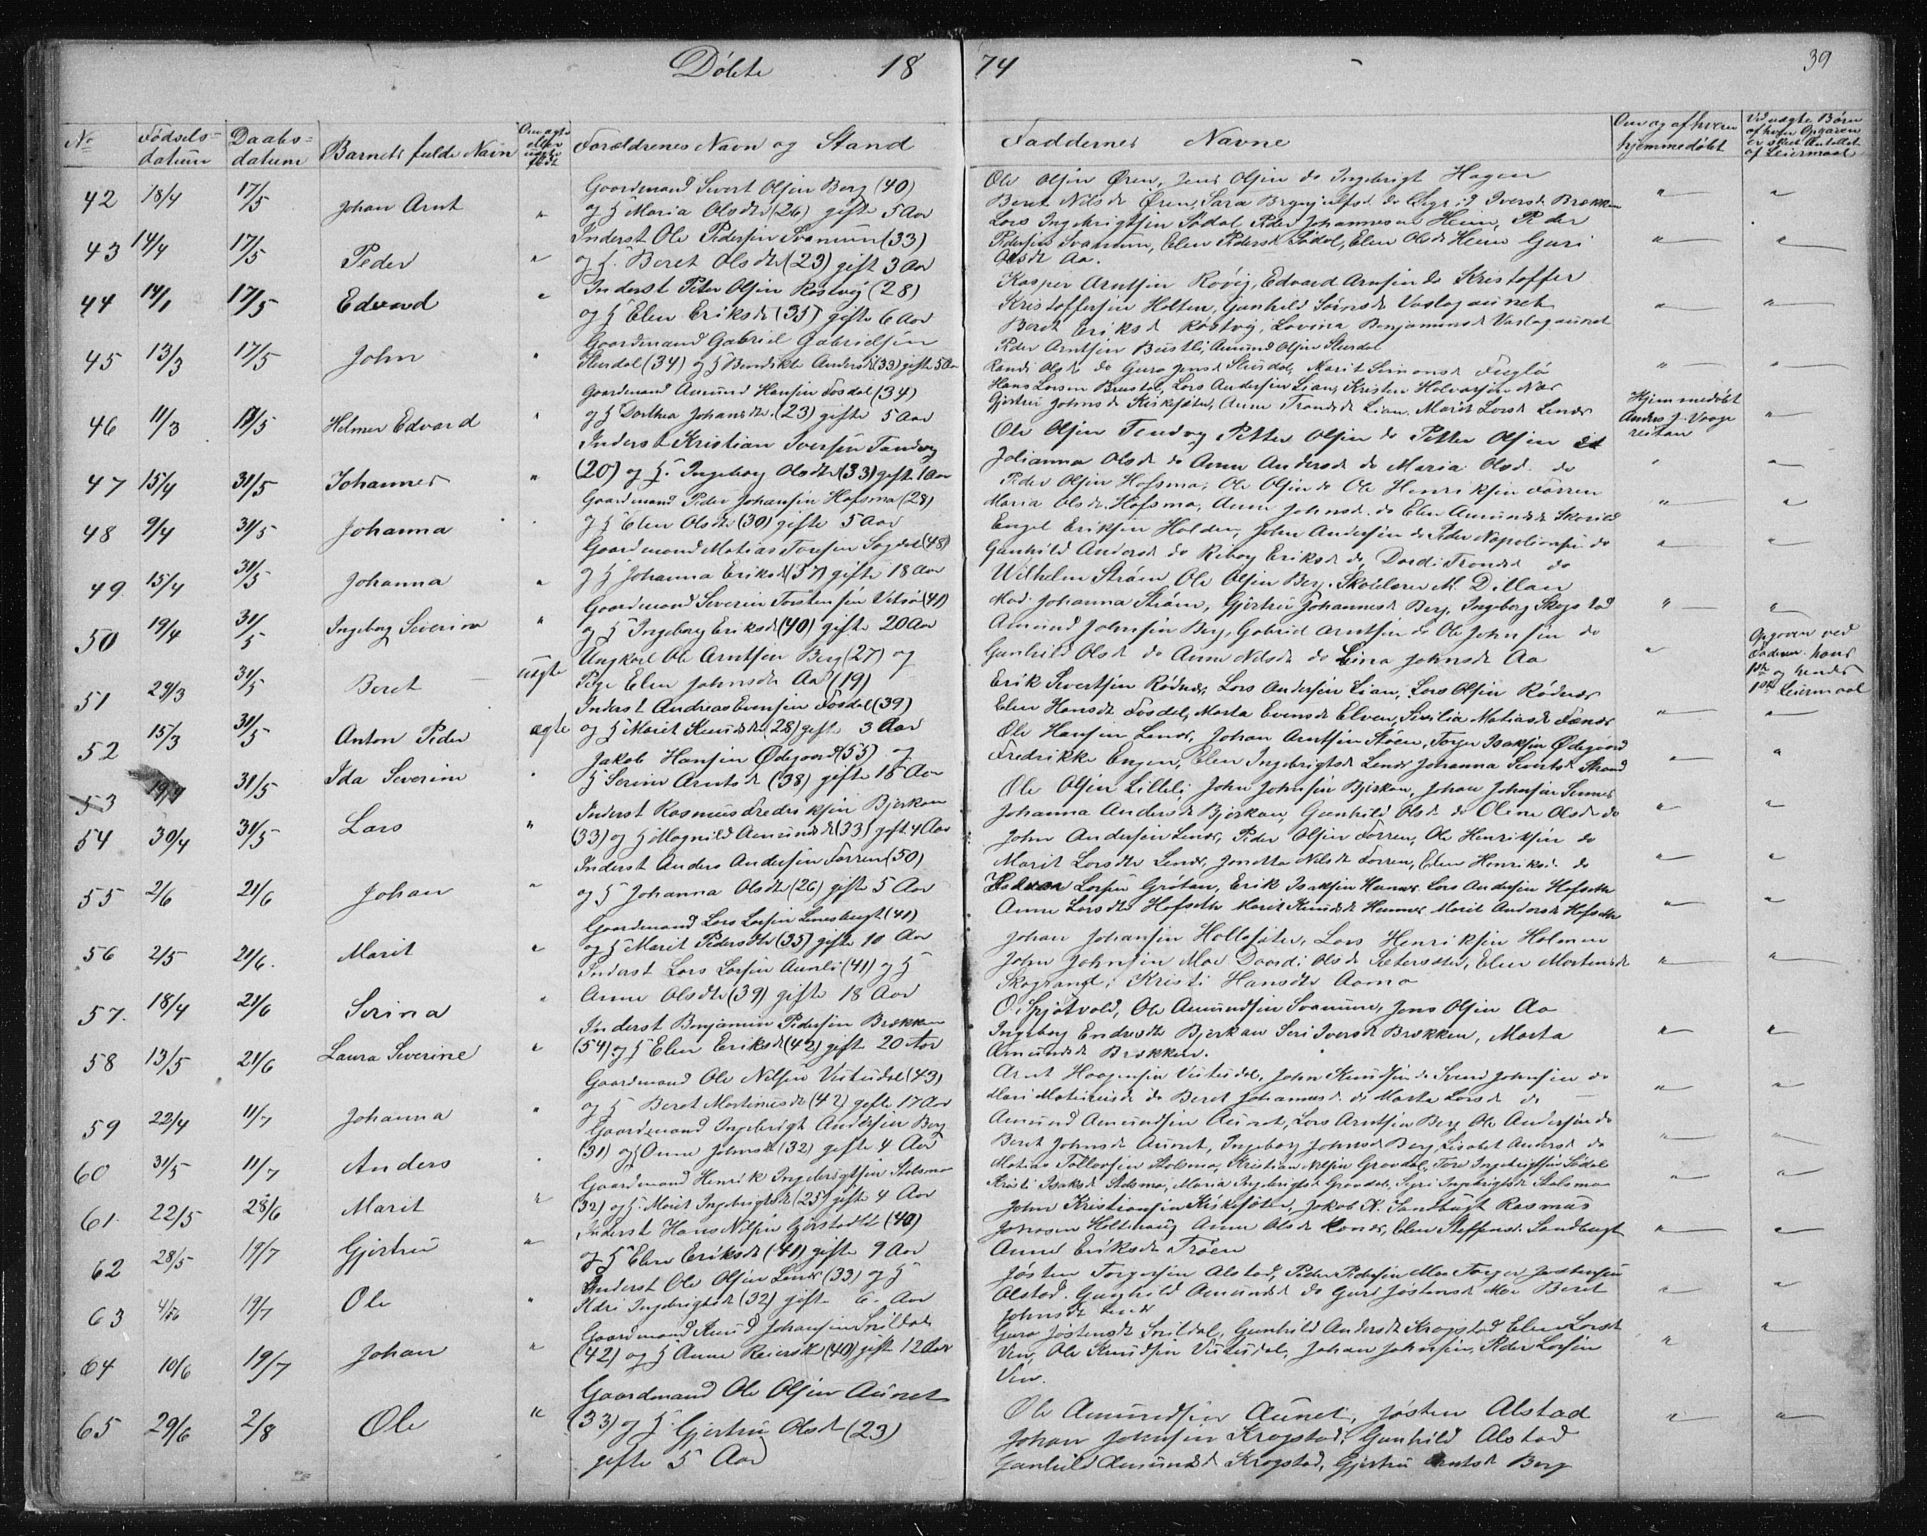 Döbte 18 74 39
No
Fødsels-datum
Daabs-datum
Barnets fulde Navn
Om ægte eller uægte født
Forældrenes Navn og Stand
Faddernes Navne
Om og af hvem hjemmedøbt
Ved uægte Børn af hvem Opgaven er skeet Antallet af Leiermaal
42 18/4 17/5 Johan Arnt " Gaardmand Sivert Olsen Berg (40)
og H Maria Olsdtr (26) gifte 5 Aar
Ole Olsen Øren, Jens Olsen do Ingebrigt Hagen
Beret Nilsd Øren, Sara do Sigrid Iversd Brækken
43 14/4 17/5 Peder " Inderst Ole Pedersen Svanum (33)
og H. Beret Olsdtr (23) gift 3 Aar
Lars Ingebrigtsen Sødal, Peder Johannesen Heim, Peder
Pedersen Svanum, Elen Pedersd Sødal, Elen Olsd Heim Guri
Olsdt Aa.
44 14/1 17/5 Edvard " Inderst Peter Olsen Røstvig (28)
og H Elen Eriksd (35) gifte 6 Aar
Kasper Arntsen Røvig, Edvard Arnsen do Kristoffer
Kristoffersen Holten, Gunhild Vaslagaunet
Beret Eriksd Røstvig, Lovina Benjaminsd Vaslagaunet
45 13/3 17/5 John " Gaardmand Gabriel Gabrielsen
Slusdal (34) og H Bendikte Andersd (33) gifte 5 Aar
Peder Arntsen Bustli, Amund Olsen Slusdal
Randi Olsd do Guru Slusdal, Marit Simonsd Fuglø
46 11/3 17/5 Helmer Edvard " Gaardmand Amund Hansen Fosdal (34)
og H Dorthea Johansdtr. (23) gifte 5 Aar
Hans Larsen Bustli, Lars Andersen Lian, Kristen Halvorsen Næs
Gjertru Johnsd Kirksæter, Anne Trondsd Lian, Marit Larsd Lenes
Hjemmedøbt
Anders J. Vaage
reitan
47 15/4 31/5 Johannes " Inderst Kristian Iversen Tandvog
(20) og H. Ingeborg Olsdtr (33) gifte 1 Aar
Ole Olsen Tendvog Petter Olsen do Petter Olsen
Johanna Olsd do Anne Andersd do Maria Olsd. do
48 9/4 31/5 Johanna Gaardmand Peder Johansen Hofsmo (28)
og H Elen Olsdtr (30) gifte 5 Aar
Peder Olsen Hofsmo, Ole Olsen do Ole Henriksen Forren
Maria Olsdtr Hofsmo, Anne Johnsd. do Elen Amundsd Skarild
49 15/4 31/5 Johanna " Gaardmand Matias Sagdal (48)
og H Johanna Eriksd (37) gifte 18 Aar
Engel Eriksen Holden, John Andersen do Peder Napoleonsen do
Gunhild Andersd do Eriksd do, Dordi Trondsd do
50 19/4 31/5 Ingeborg Severine " Gaardmand Severin Torstensen Vitsø (41)
og H Ingeborg Eriksd (40) gifte 20 Aar
Wilhelm Strøm, Ole Olsen Berg, Skolelærer M. Dillan
Mad. Johanna Strøm, Gjertru Johannesd Berg, Ingeborg Skogstad
51 29/3 31/5 Beret uægte Ungkarl Ole Arntsen Berg (27) og
Pige Elen Johnsdtr Aa (19)
Amund Johnsen Berg, Gabriel Arntsen do Ole Johnsen do
Gunhild Olsd do Anne Nilsd do Lina Johnsdt Aa
Opgaven ved
Faderen hans
1ste og hendes
1ste Leiermaal
52 15/3 31/5 Anton Peder ægte Inderst Andreas Evensen Fosdal (39)
og H Marit Knudsdtr (28) gift 3 Aar
Erik Sivertsen Rødnæs, Lars Andersen Lian, Lars Olsen Rødnæs
Elen Hansdt Fosdal, Marta Evensdt Elven, Sesilia Matiasdt Fones
53 19/4 31/5 Ida Severine " Jakob Hansen Ødegaard (55) og
H Serine Arntsd (38) gift 18 Aar
Ole Hansen Lenes, Johan Arntsen Støen, Torger Isaksen Ødegaard
Fredrikke Engen, Elen Ingebrigtsd Lenes Johanna Sivertsd Strand
54 30/4 31/5 Lars " Inderst Rasmus Fredriksen Bjerkan
(33) og H Magnild Amundsd (33) gift 4 Aar
Ole Olsen Lilleli, John Johnsen Bjerkan, Johan Johnsen
Johanna Andersd Bjerkan, Gunhild Olsd do Oline Olsd do
55 2/6 21/6 Johan " Inderst Anders Andersen Forren (50)
og H Johanna Olsdtr (26) gifte 5 Aar
John Andersen Lenes, Peder Olsen Forren, Ole Henriksen do
Marit Larsdtr Lenes, Jonetta Nilsd Forren, Elen Henriksd do
56 2/5 21/6. Marit " Gaardmand Lars Larsen (41)
og H Marit Pedersdtr (35) gifte 10 Aar
Halvor Larsen Grøtan, Erik Isaksen Hennes, Lars Andersen Hofseth
Anne Larsdtr Hofseth Marit Knudsd Hennes, Marit Andersd Hofseth
57. 18/4 21/6 Serina " Inderst Lars Larsen Aunli (41) og H
Anne Olsdtr (39) gifte 18 Aar
Johan Johansen Hollasæter, Lars Henriksen Holmen
John Johnsen Moe Daardi Olsd Sætersæter, Elen Mortensd
Skogrand, Kristi Hansdtr Aamo
58 13/5 21/6 Laura Severine " Inderst Benjamin Pedersen Brækken
(54) og H Elen Eriksd (42) gifte 20 Aar
O. Spjøtvold, Ole Amundsen Svanum, Jens Olsen Aa
Ingeborg Endresdt Bjerkan Seri Iversd Brækken, Marta
Amundsd Brækken.
59 22/4 11/7 Johanna " Gaardmand Ole Nilsen Vutudal (43)
og H Beret Mortinusdt (42) gifte 17 Aar
Arnt Haagensen Vutudal, John Knudsen do Svend Johnsen do
Mari do Beret Johannesd do Marta Larsd do
60 31/5 11/7 Anders " Gaardmand Ingebrigt Andersen Berg
(31) og Anne Johnsd (32) gifte 4 Aar
Amund Amundsen Aunet, Lars Arntsen Berg, Ole Andersen do
Beret Johnsd Aunet, Ingeborg Johnsd Berg, Lisabet Andersd do
61. 22/5 28/6 Marit " Gaardmand Henrik Ingebrigtsen Stolsmo
(32) og H. Marit Ingebrigtsd (25) gifte 4 Aar
Matias Tollevsen Stolsmo, Kristian Nilsen Grovdal, Tore Ingebrigtsen Sødal
Kristi Isaksd Stolsmo, Maria Ingebrigtsd Grovdal, Seri Ingebrigtsd Stolsmo
62 28/5 19/7 Gjertru " Inderst Hans Nilsen Gjerstadli (40)
og H Elen Eriksd (41) gifte 9 Aar
John Kristiansen Kirksæter, Jakob K. Sandbugt Rasmus
Johnsen Holthaug Anne Olsd Lenes, Elen Steffensd Sandbugt
Anne Eriksd Trøen
63 4/6 19/7 Ole " Inderst Ole Olsen Lenes (33) og H
Ingebrigtsd (32) gifte 6 Aar
Jøsten Torgersen Alstad, Peder Pedersen Moe Torger Jøstensen
Alstad. Gunhild Amundsd do Guri Jøstensd Moe Beret
Johnsd Lenes
64 10/6 19/7 Johan " Gaardmand Knud Johansen Snildal
(42) og H Anne Reiersd (40) gifte 12 Aar
Guro Jøstensdt Snildal, Gunhild Andersdt Krogstad Elen Larsdt
Ven, Ole Knudsen Vutudal, Johan Johnsen, Peder Larsen
Ven.
65 29/6 2/8 Ole " Gaardmand Ole Olsen Aunet
(33) og H. Gjertru Olsd (23)
gifte 5 Aar
Ole Amundsen Aunet, Jøsten Alstad
Johan Johnsen Krogstad, Gunhild Alstad
Gunhild Amundsd Krogstad, Gjertru Arntsd Berg